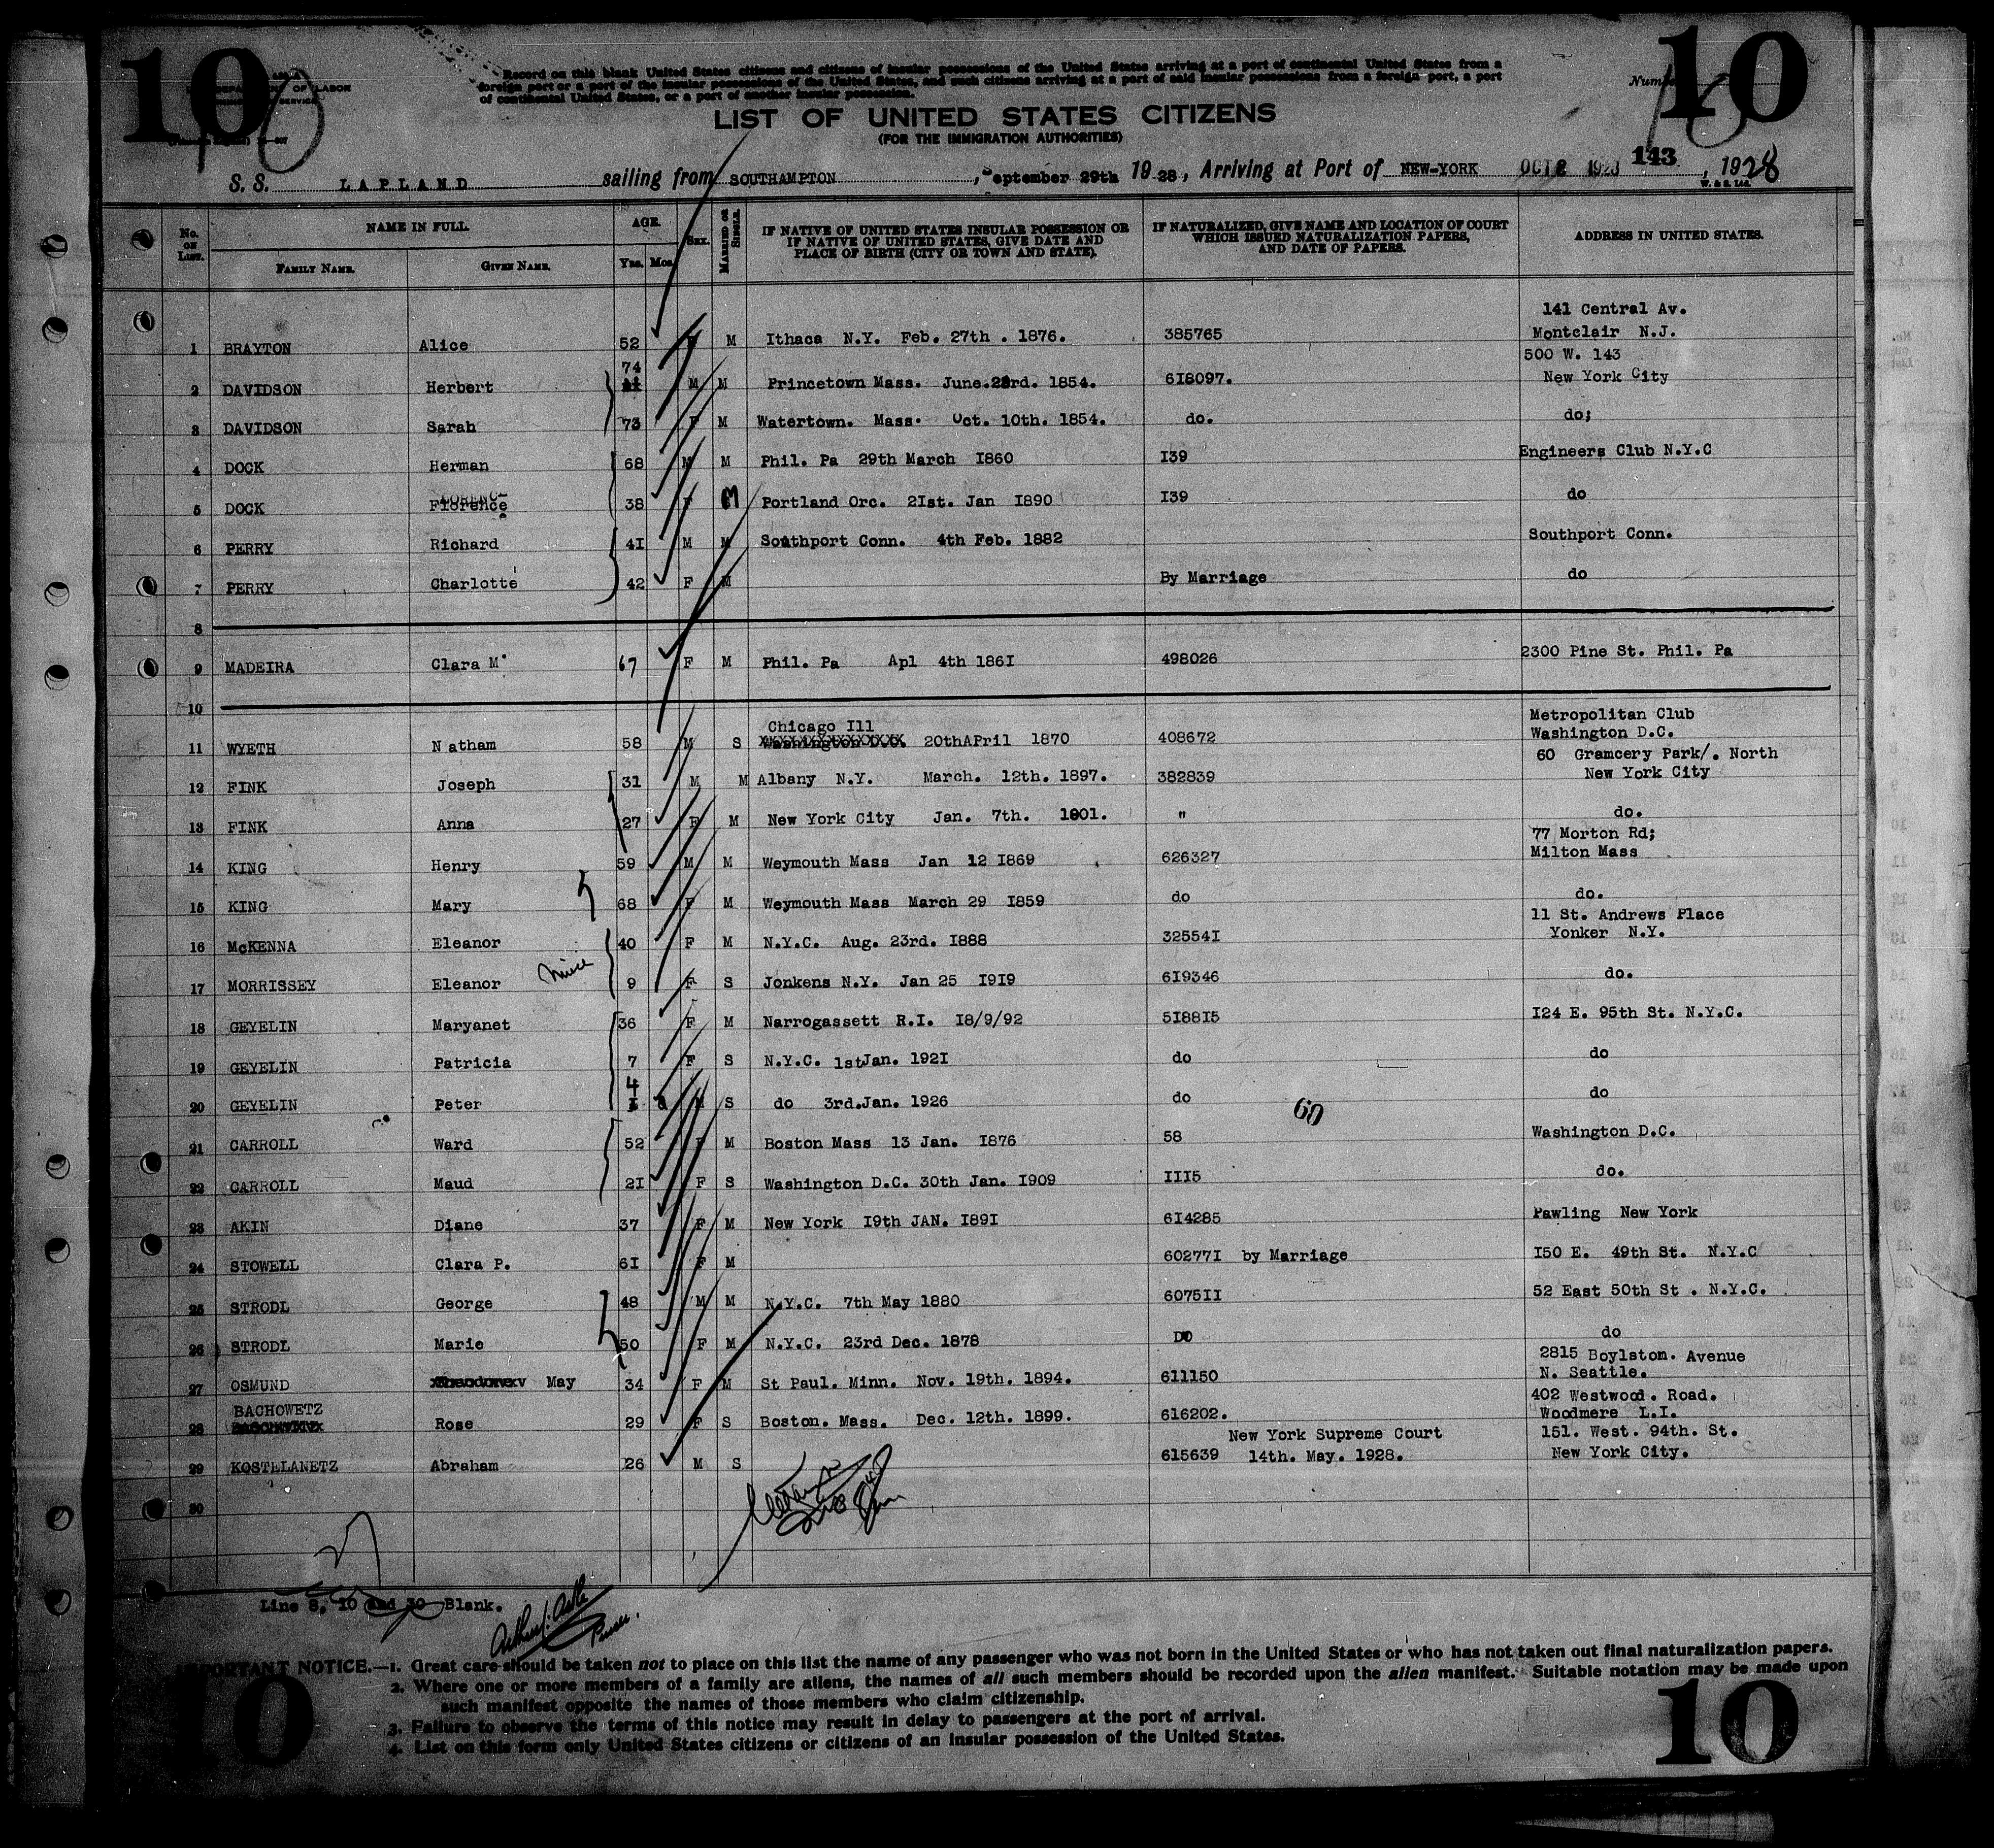 10
10
Record on this blank United States citizens and citizens of insular possessions of the United States arriving at a port of continental United States from a
foreign port or a port of the insular possessions of the United States, and such citizens arriving at a port of said insular possessions from a foreign port, a port
of continental United States, or a port of another insular possession.
Number
LIST OF UNITED STATES CITIZENS
(FOR THE IMMIGRATION AUTHORITIES)
143
S. S. LAPLAND sailing from SOUTHAMPTON, September 29th 19 28, Arriving at Port of NEW-YORK OCT 8 192, 1928
W. & S. Ltd.
No. ON LIST. NAME IN FULL. AGE. SEX. MARRIED OR SINGLE. IF NATIVE OF UNITED STATES INSULAR POSSESSION OR IF NATIVE OF UNITED STATES, GIVE DATE AND PLACE OF BIRTH (CITY OR TOWN AND STATE). IF NATURALIZED, GIVE NAME AND LOCATION OF COURT WHICH ISSUED NATURALIZATION PAPERS, AND DATE OF PAPERS. ADDRESS IN UNITED STATES.
FAMILY NAME. GIVEN NAME. Yrs. Mos.
141 Central Av.
1 BRAYTON Alice 52 F M Ithaca N.Y. Feb. 27th . 1876. 385765 Montclair N.J.
74 500 W. 143
2 DAVIDSON Herbert M M Princetown Mass. June.23rd. 1854. 618097. New York City
3 DAVIDSON Sarah 73 F M Watertown. Mass. Oct. 10th. 1854. do. do;
4 DOCK Herman 68 M M Phil. Pa 29th March I860 I39 Engineers Club N.Y.C
5 DOCK Florence 38 F M Portland Orc. 2Ist. Jan I890 I39 do
6 PERRY Richard 4I M M Southport Conn. 4th Feb. 1882 Southport Conn.
7 PERRY Charlotte 42 F M By Marriage do
8
9 MADEIRA Clara M 67 F M Phil. Pa Apl 4th 186I 498026 2300 Pine St. Phil. Pa
10
Chicago Ill Metropolitan Club
11 WYETH Natham 58 M S Washington D.C. 20thAPril I870 408672 Washington D.C.
60 Gramcery Park/. North
12 FINK Joseph 31 M M Albany N.Y. March. 12th. 1897. 382839 New York City
13 FINK Anna 27 F M New York City Jan. 7th. 1901. " do.
77 Morton Rd;
14 KING Henry 59 M M Weymouth Mass Jan 12 I869 626327 Milton Mass
15 KING Mary 68 F M Weymouth Mass March 29 I859 do do.
11 St. Andrews Place
16 McKENNA Eleanor 40 F M N.Y.C. Aug. 23rd. I888 32554I Yonker N.Y.
17 MORRISSEY Eleanor niece 9 F S Jonkens N.Y. Jan 25 I9I9 6I9346 do.
18 GEYELIN Maryanet 36 F M Narrogassett R.I. I8/9/92 5I88I5 I24 E. 95th St. N.Y.C.
19 GEYELIN Patricia 7 F S N.Y.C. 1stJan. 192I do do
4
20 GEYELIN Peter S do 3rd.Jan. 1926 do do
60
21 CARROLL Ward 52 F M Boston Mass 13 Jan. I876 58 Washington D.C.
22 CARROLL Maud 2I F S Washington D.C. 30th Jan. I909 III5 do.
23 AKIN Diane 37 F M New York I9th JAN. I89I 6I4285 Pawling New York
24 STOWELL Clara P. 6I F M 60277I by Marriage I50 E. 49th St. N.Y.C
25 STRODL George 48 M M N.Y.C. 7th May I880 6075II 52 East 50th St . N.Y.C.
26 STRODL Marie 50 F M N.Y.C. 23rd Dec. I878 DO do
2815 Boylston. Avenue
27 OSMUND May 34 F M St Paul. Minn. Nov. 19th. 1894. 611150 N. Seattle.
BACHOWETZ 402 Westwood. Road.
28 Rose 29 F S Boston. Mass. Dec. 12th. 1899. 616202. Woodmere L.I.
New York Supreme Court 151. West. 94th. St.
29 KOSTELANETZ Abraham 26 M S 615639 14th. May. 1928. New York City.
30
Line 8, 10 and 30 Blank.
IMPORTANT NOTICE.—1. Great care should be taken not to place on this list the name of any passenger who was not born in the United States or who has not taken out final naturalization papers.
2. Where one or more members of a family are aliens, the names of all such members should be recorded upon the alien manifest. Suitable notation may be made upon
such manifest opposite the names of those members who claim citizenship.
3. Failure to observe the terms of this notice may result in delay to passengers at the port of arrival.
4. List on this form only United States citizens or citizens of an insular possession of the United States.
10
10